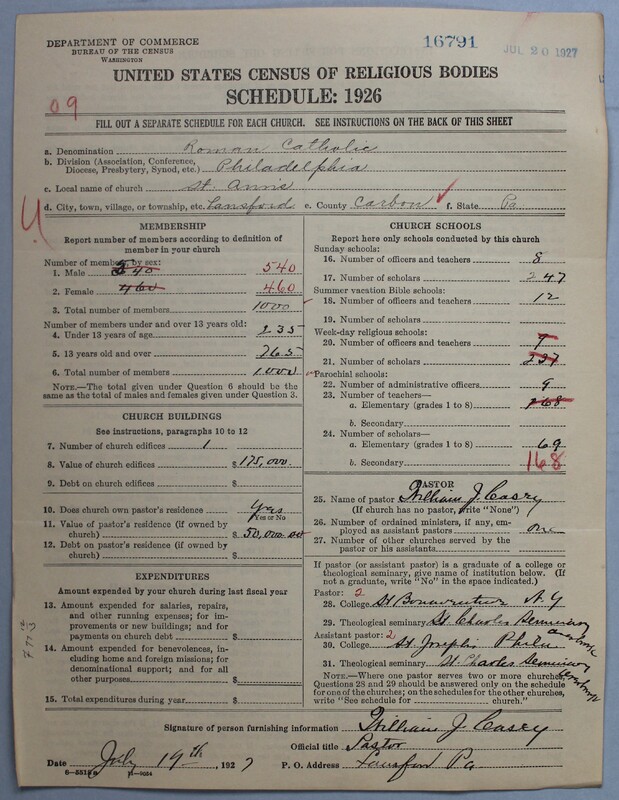 DEPARTMENT OF COMMERCE
BUREAU OF THE CENSUS
WASHINGTON
16791
JUL 20 1927
UNITED STATES CENSUS OF RELIGIOUS BODIES
SCHEDULE: 1926
09
FILL OUT A SEPARATE SCHEDULE FOR EACH CHURCH. SEE INSTRUCTIONS ON THE BACK OF THIS SHEET
a. Denomination Roman Catholic
b. Division (Association, Conference, Diocese, Presbytery, Synod, etc.) Philadelphia
c. Local name of church St. Ann's
d. City, town, village, or township, etc. Lansford e. County Carbon f. State Pa
MEMBERSHIP
Report number of members according to definition of
member in your church
Number of members by sex:
1. Male 540 540
2. Female 460 460
3. Total number of members 1000
Number of members under and over 13 years old:
4. Under 13 years of age 235
5. 13 years old and over 765
6. Total number of members 1000
NOTE.—The total given under Question 6 should be
the same as the total of males and females given under Question 3.
CHURCH BUILDINGS
See instructions, paragraphs 10 to 12
7. Number of church edifices 1
8. Value of church edifices $175,000.
9. Debt on church edifices $
10. Does church own pastor's residence Yes
Yes or No
11. Value of pastor's residence (if owned by
church) $50,000.00
12. Debt on pastor's residence (if owned by
church) $
EXPENDITURES
Amount expended by your church during last fiscal year
13. Amount expended for salaries, repairs,
and other running expenses; for im-
provements or new buildings; and for
payments on church debt $
14. Amount expended for benevolences, in-
cluding home and foreign missions; for
denominational support; and for all
other purposes $
15. Total expenditures during year $
CHURCH SCHOOLS
Report here only schools conducted by this church
Sunday schools:
16. Number of officers and teachers 8
17. Number of scholars 247
Summer vacation Bible schools:
18. Number of officers and teachers 12
19. Number of scholars
Week-day religious schools:
20. Number of officers and teachers 9
21. Number of scholars 237
Parochial schools:
22. Number of administrative officers 9
23. Number of teachers—
a. Elementary (grades 1 to 8) 168
b. Secondary
24. Number of scholars—
a. Elementary (grades 1 to 8) 69
b. Secondary 168
PASTOR
25. Name of pastor William J. Casey
(If church has no pastor, write "None")
26. Number of ordained ministers, if any, em-
ployed as assistant pastors one
27. Number of other churches served by the
pastor or his assistants
If pastor (or assistant pastor) is a graduate of college or
theological seminary, give name of institution below. (If
not a graduate, write "No" in the space indicated.)
Pastor: 2
28. College St Bonaventure N.Y
29. Theological seminary St. Charles Seminary
Assistant pastor: 2
30. College St. Josephs Phila
31. Theological seminary St Charles Seminary
NOTE.—Where one pastor serves two or more churches,
Questions 28 and 29 should be answered only on the schedule
for one of the churches; on the schedules for the other churches,
write "See schedule for church."
Signature of person furnishing information William J Casey
Official title Pastor
Date July 19th, 1927 P. O. Address Lansford Pa